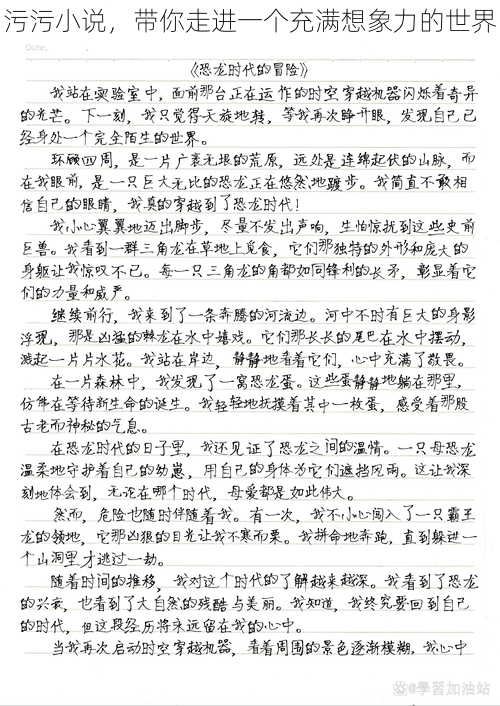 污污小说，带你走进一个充满想象力的世界
Date.
《恐龙时代的冒险》
我站在实验室中，面前那台正在运作的时空穿越机器闪烁着奇异
的光芒。下一刻，我只觉得天旋地转，等我再次睁开眼，发现自己已
经身处一个完全陌生的世界。
环顾四周，是一片广袤无垠的荒原，远处是连绵起伏的山脉，而
在我眼前，是一只巨大无比的恐龙正在悠然地踱步。我简直不敢相
信自己的眼睛，我真的穿越到了恐龙时代！
我小心翼翼地迈出脚步，尽量不发出声响，生怕惊扰到这些史前
巨兽。我看到一群三角龙在草地上觅食，它们那独特的外形和庞大的
身躯让我惊叹不已。每一只三角龙的角都如同锋利的长矛，彰显着它
们的力量和威严。
继续前行，我来到了一条奔腾的河流边。河中不时有巨大的身影
浮现，那是凶猛的棘龙在水中嬉戏。它们那长长的尾巴在水中摆动，
溅起一片片水花。我站在岸边，静静地看着它们，心中充满了敬畏。
在一片森林中，我发现了一窝恐龙蛋。这些蛋静静地躺在那里，
仿佛在等待新生命的诞生。我轻轻地抚摸着其中一枚蛋，感受着那股
古老而神秘的气息。
在恐龙时代的日子里，我还见证了恐龙之间的温情。一只母恐龙
温柔地守护着自己的幼崽，用自己的身体为它们遮挡风雨。这让我深
刻地体会到，无论在哪个时代，母爱都是如此伟大。
然而，危险也随时伴随着我。有一次，我不小心闯入了一只霸王
龙的领地，它那凶狠的目光让我不寒而栗。我拼命地奔跑，直到躲进一
个山洞里才逃过一劫。
随着时间的推移，我对这个时代的了解越来越深。我看到了恐龙
的兴衰，也看到了大自然的残酷与美丽。我知道，我终究要回到自己
的时代，但这段经历将永远留在我的心中。
当我再次启动时空穿越机器，看着周围的景色逐渐模糊，我心中
@學習加油站